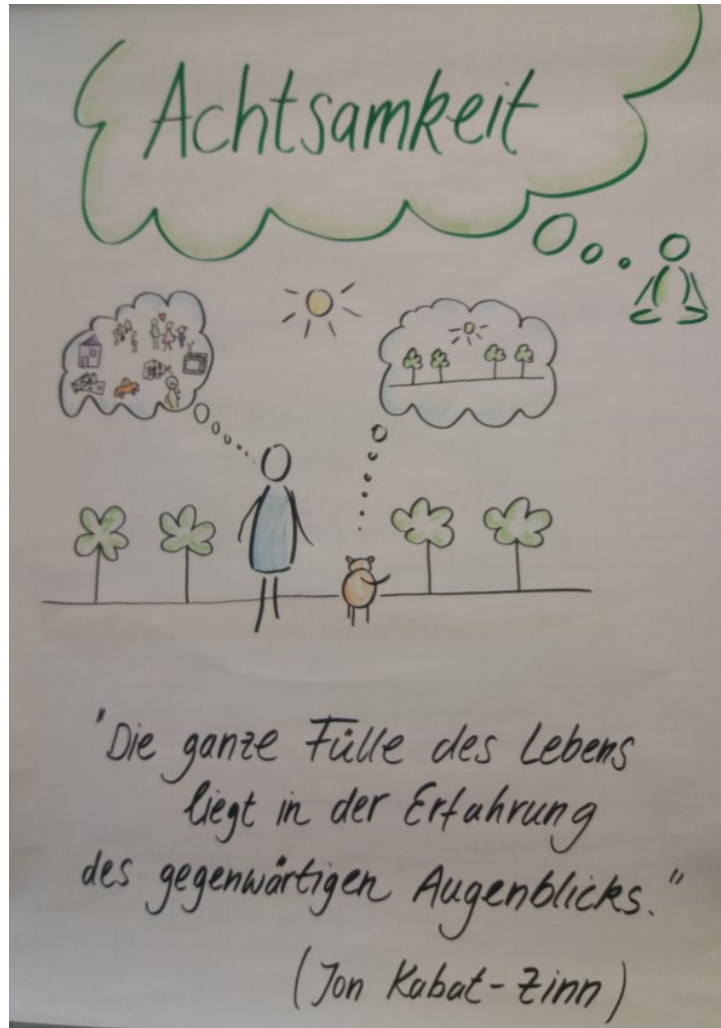 Achtsamkeit
"Die ganze Fülle des Lebens
liegt in der Erfahrung
des gegenwärtigen Augenblicks."
(Jon Kabat-Zinn)